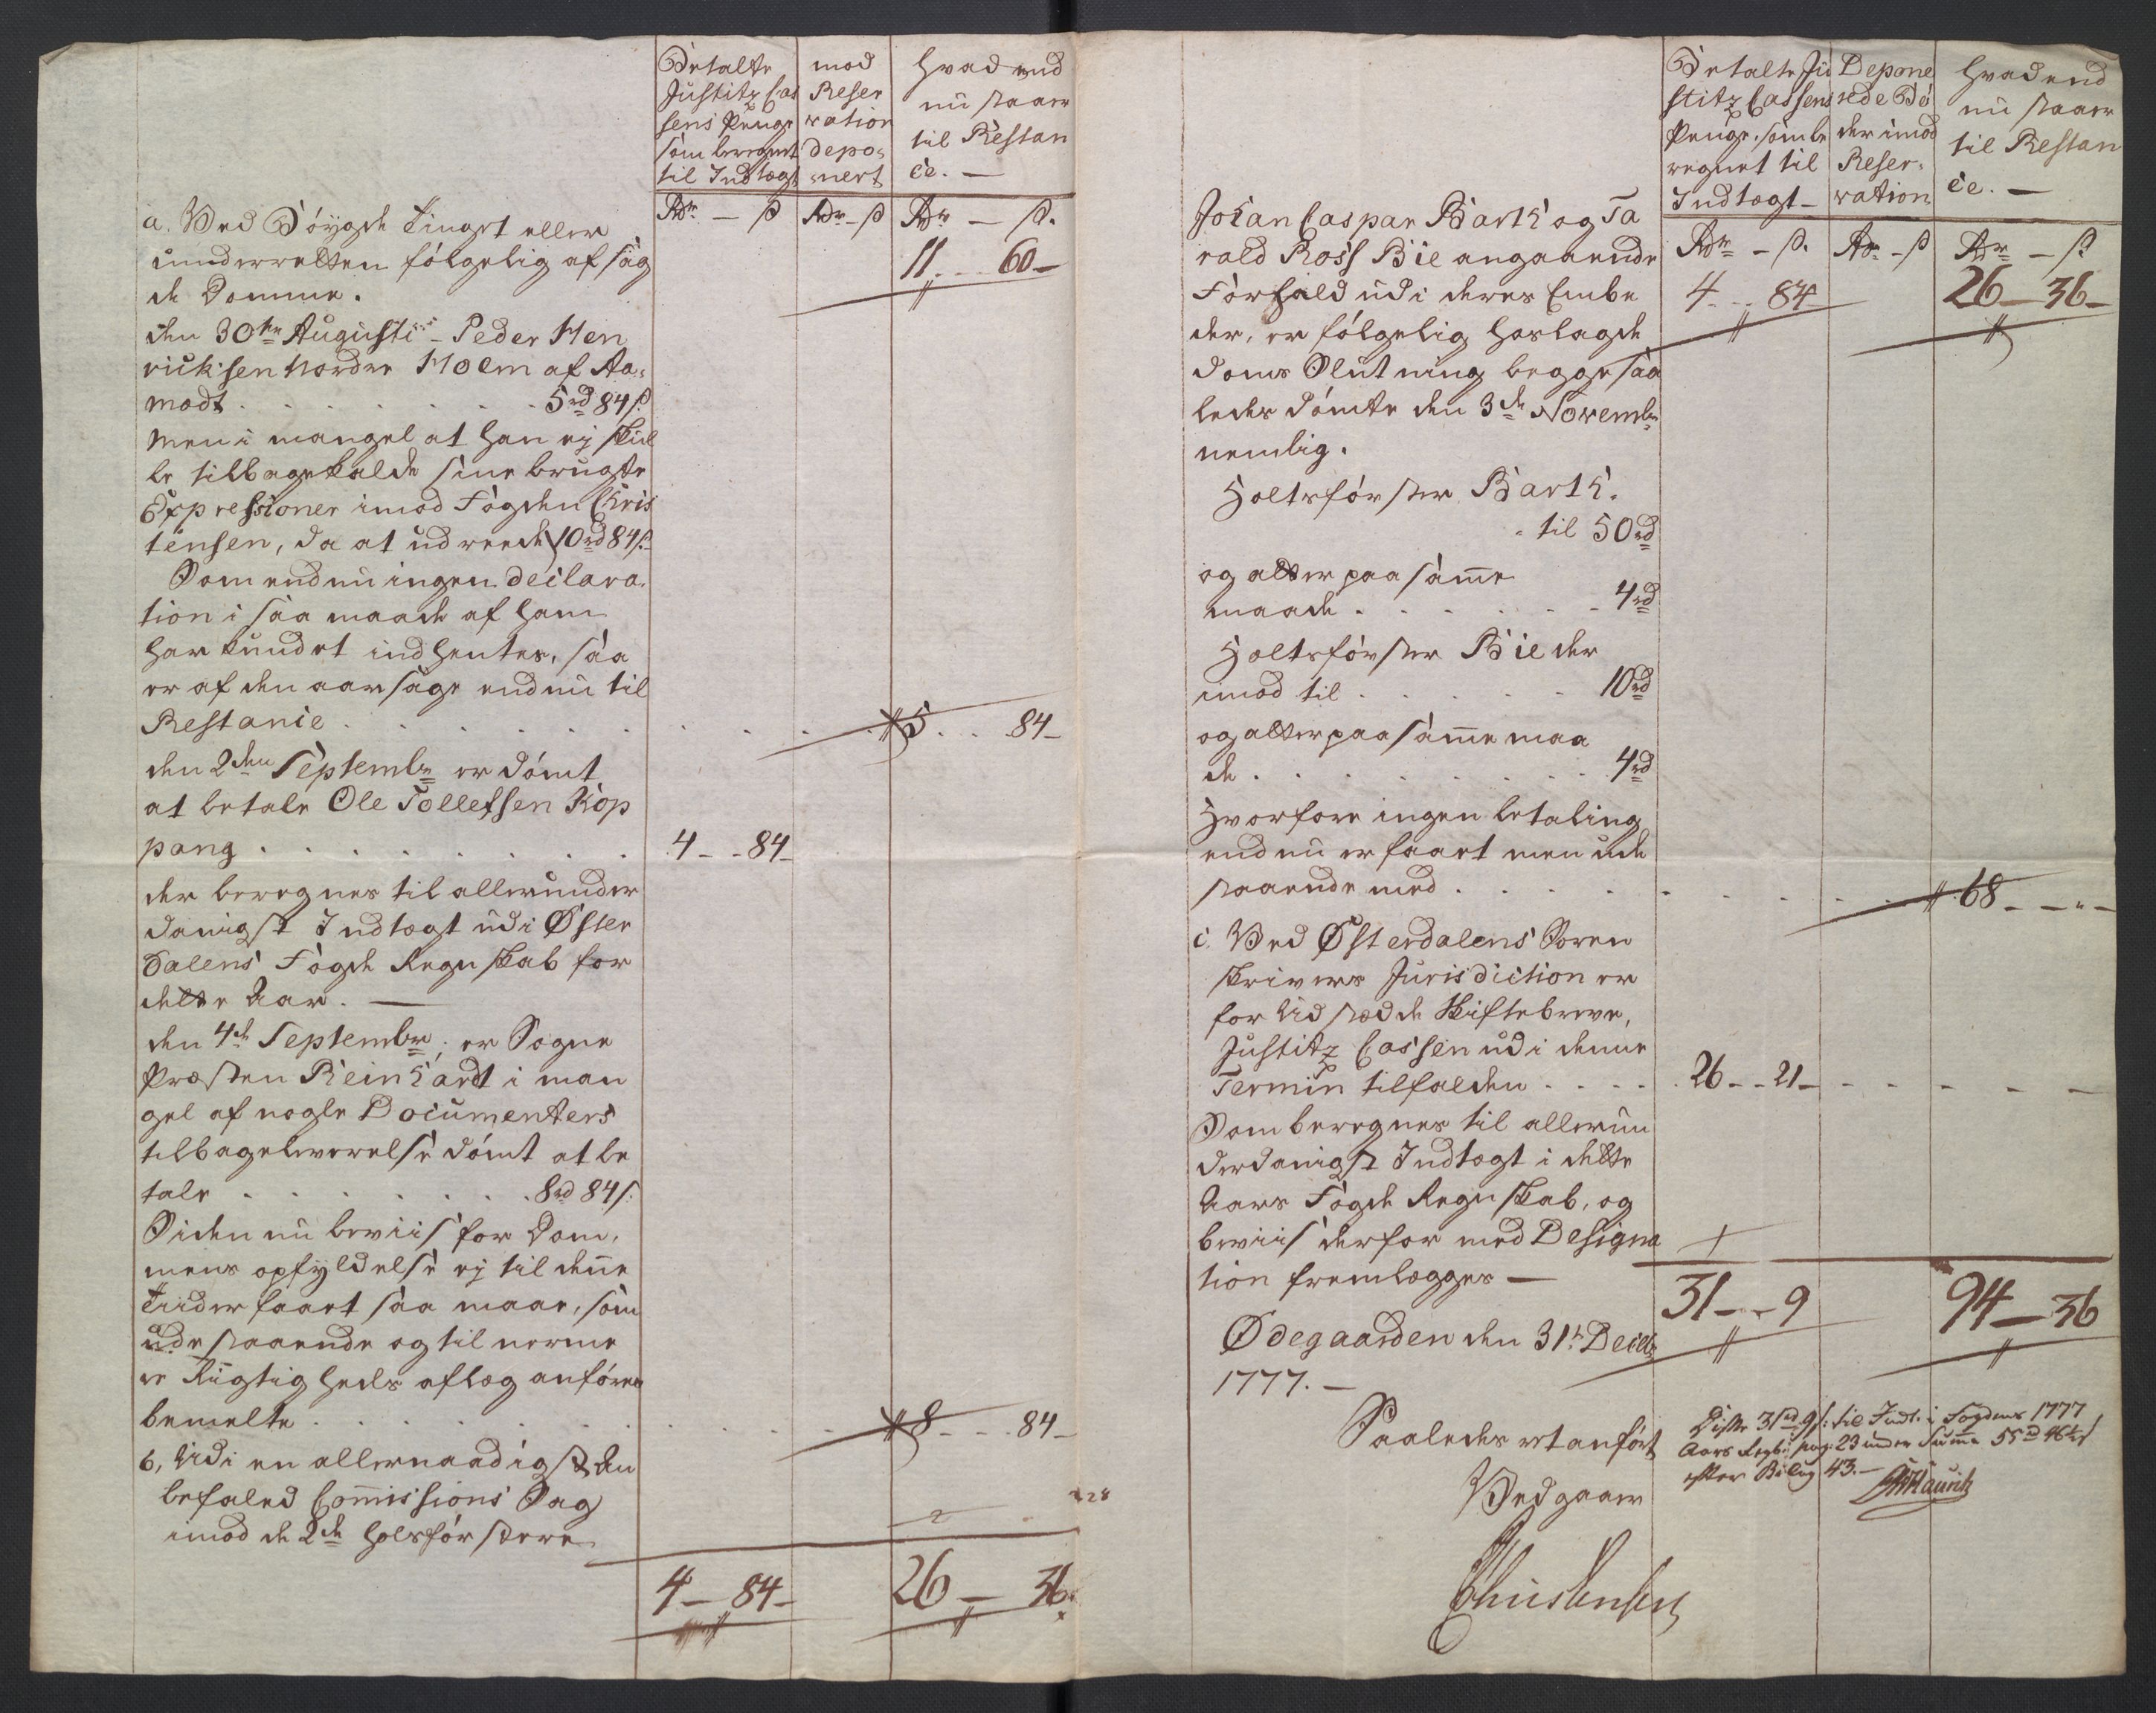 Betalte
Justitz Cas
sens Penge
som beregnet
til Indtægt
mod
Reser
vation
depo-
nert
Hvad end
nu staar
til Restan
ce. —
Rdr — s
Rdr — s
Rdr — s.
a. Ved Bøygde Tinget eller
underretten følgelig afsag
de Domme.
11 . . 60 —
den 30te Augusti - Peder Hen
ricksen Nordre Holm af Aa-
modt . . . . . . . 5rd 84s
men i mangel at han ej skul
le tilbagekalde sine brugte
Expressioner imod Fogden Chris
tensen, da at udreede 10rd 84s.
Som endnu ingen declara-
tion i saa maade af ham
har kundet indhentes, saa
er af den aarsage endnu til
Restance . . . . . . . . . . 5 . . . 84 —
den 2den Septembr er dømt
at betale Ole Tollefsen Kop
pang . . . . . . . . 4 — - 84 —
der beregnes til allerunder
danigst Indtægt udi Øster
dalens Fogde Regnskab for
dette Aar. —
den 4de Septembr. er Sogne
Præsten Reinhardt i man
gel af nogle Documenters
tilbageleverelse dømt at be
tale . . . . . . . 8rd 84s:
Siden nu beviis for Dom-
mens opfyldelse ej til denne
Tiid er faaet saa maae, som
udestaaende og til nerme
re Rigtigheds aflæg anføres
bemelte . . . . . . . . . . 8 — . . 84 —
b, Udi en allernaadigst An
befaled Commissions Sag
imod de 2de Holsførstere
4 — 84 —
26 — 36.
Betalte Ju
stitz Cassens
Penge, som be
regnet til
Indtægt —
Depone
rede De
der imod
Reser-
vation
Hvad end
nu staar
til Restan
ce. —
Rdr — s.
Rdr — s
Rdr — s
Johan Caspar Barth og Ta
rald Ross Bie angaaende
Forfald udi deres Embe
der, er følgelig hoslagde
doms Slutning begge saa
ledes dømte den 3de Novembr
nemlig.
4 . . . 84
26 — 36 —
Holtsførster Barth.
til 50rd
og atter paa samme
maade . . . . . . 4rd
Holtsførster Bie der
imod til . . . . . 10rd
og atter paa samme maa
de . . . . . . . . 4rd
Hvorfore ingen betaling
endnu er faaet men ude
staaende med . . . . . . . . 68 — — " —
c. Ved Østerdalens Soren
skrivers Jurisdiction er
for Udstædde Skiftebreve,
Justitz Cassen udi denne
Termin tilfalden . . . . 26 — - 21 — — — — — —
Som beregnes til allerun
derdanigst Indtægt i dette
Aars Fogde Regnskab, og
beviis derfor med Designa
tion fremlægges —
31 — - 9
94 — 36
Ødegaarden den 31te Decbr
1777. —
Saaledes at anført
Vedgaar
Christensen
Disse 31rd 9s: til Indt. i Fogdens 1777
Aars Regb: pag: 23 under Summa 55rd 46½s
efter Bilag 43. —